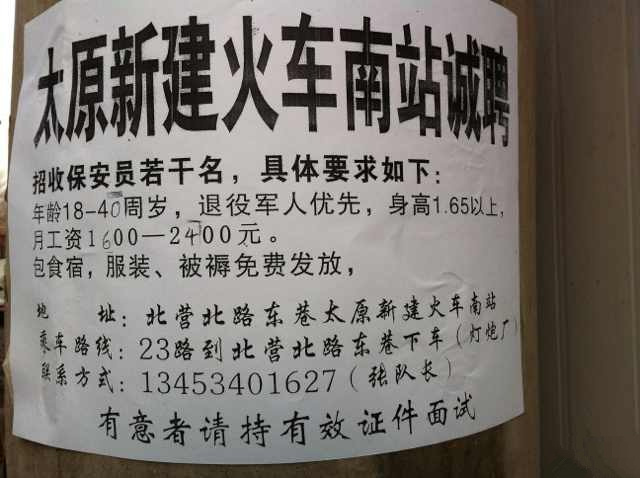 太原新建火车南站诚聘
招收保安员若干名，具体要求如下：
年龄18-40周岁，退役军人优先，身高1.65以上，
月工资1600—2400元。
包食宿，服装、被褥免费发放，
地 址：北营北路东巷太原新建火车南站
乘车路线：23路到北营北路东巷下车（灯炮厂）
联系方式：13453401627（张队长）
有意者请持有效证件面试